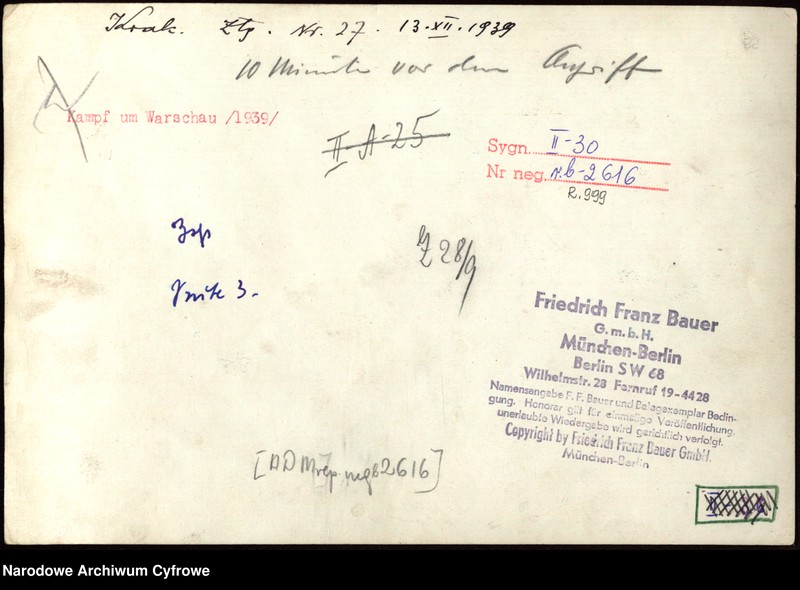 Krak. Ztg. Nr. 27. 13.XII.1939
10 Minuten vor dem Angriff
Kampf um Warschau /1939/
II-A-25
Sygn. II-30
Nr neg. n.b-2616
R.999
Z 28/9
3.
Friedrich Franz Bauer
G.m.b.H.
München-Berlin
Berlin SW 68
Wilhelmstr. 28 Fernruf 19-4428
Namensangabe F. F. Bauer und Belegexemplar Bedin-
gung. Honorar gilt für einmalige Veröffentlichung,
unerlaubte Wiedergabe wird gerichtlich verfolgt.
Copyright by Friedrich Franz Bauer GmbH.
München-Berlin
[ADM rep. neg B2616]
Narodowe Archiwum Cyfrowe